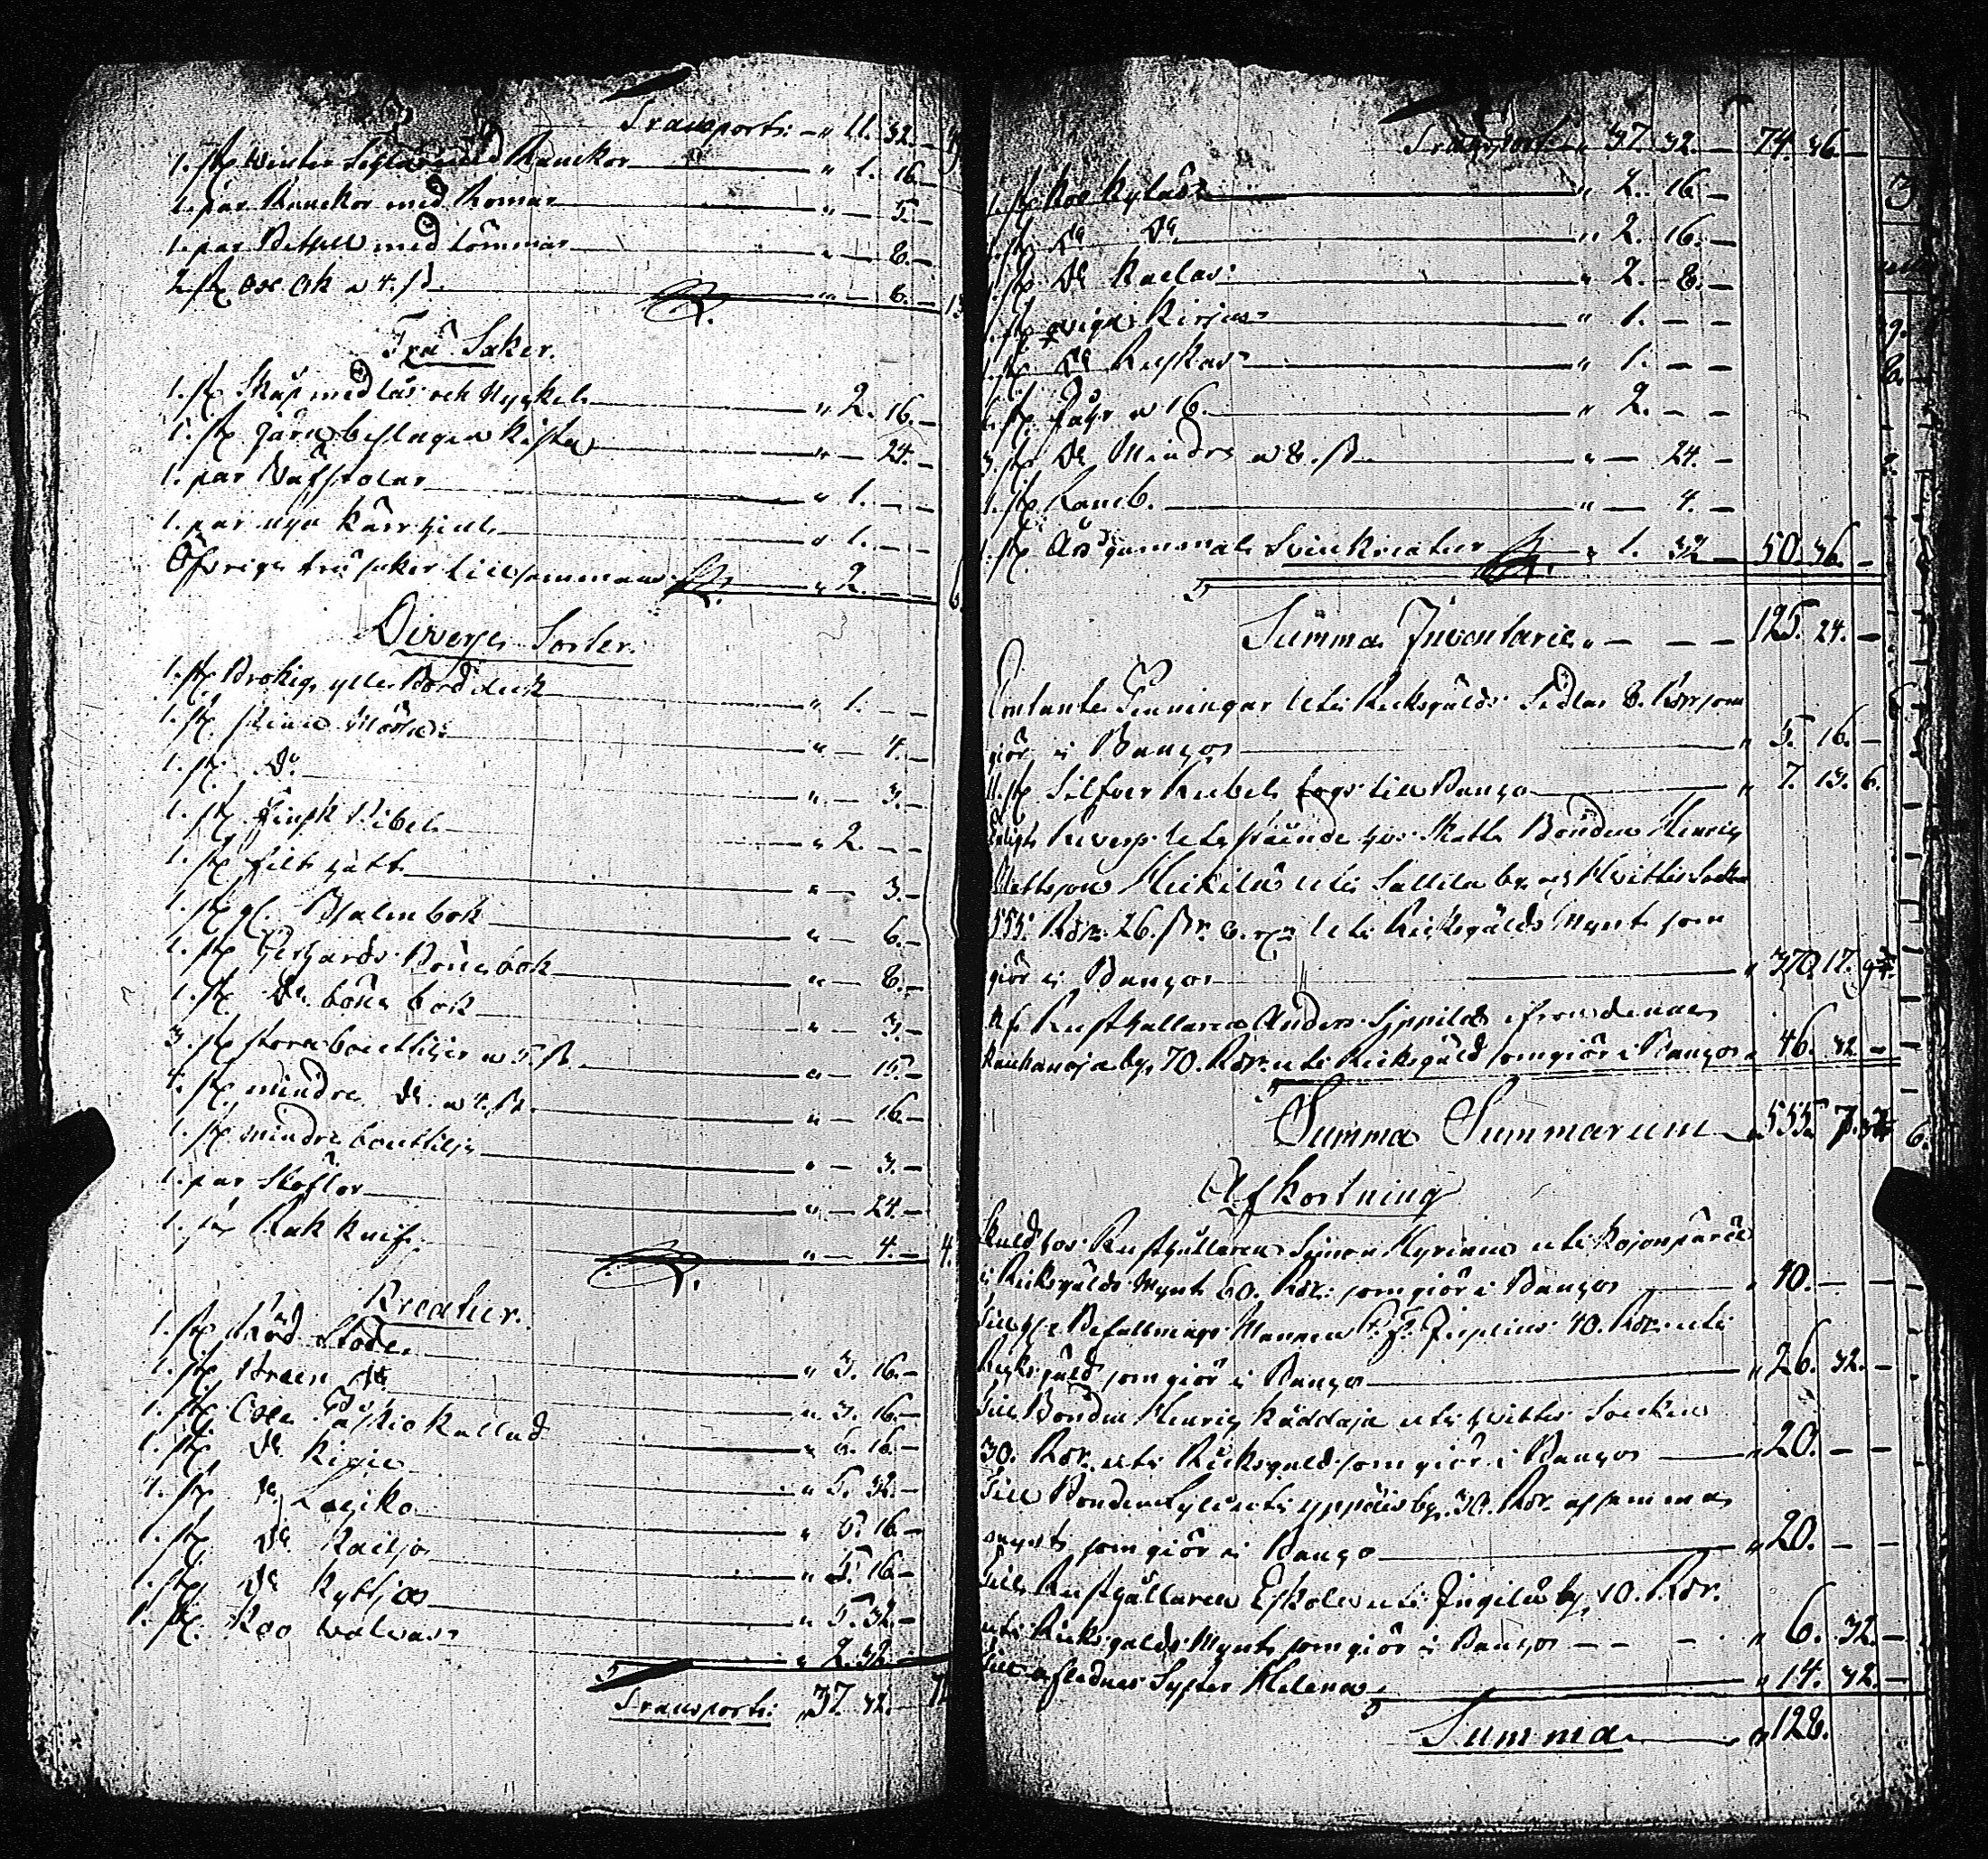 Transport: - „ 11. 32. -
1. st. Winter Seghar med Ranckor „ 1. 16. -
1. par Ranckor med Romar „ - 5. -
1. par Betsell med tömmar „ - 8. -
2. st. oxe ok a 4. ß. „ - 8. -
Trä Saker.
1. st. Skåp med lås och Nyckel „ 2. 16. -
1. st. Järnbeslagen kista „ - 24. -
1. par Väfstolar „ 1. - -
1. par nya kärr hjul „ 1. - -
Öfvrige träsaker tillsammans „ 2. - -
Diverse Sorter.
1. st. Brokig ylle Bord duk „ 1. - -
1. st. skinn Mössa „ - 4. -
1. st. D:o „ - 3. -
1. st. finsk Bibel „ 2. - -
1. st. filt hatt „ - 3. -
1. st. gl. Psalmbok „ - 6. -
1. st. Gerhards Bönebok „ - 8. -
1. st. D:o böne bok „ - 3. -
3. st. stora bouteiller a 5. ß. „ - 15. -
4. st. mindre D:o a 4. ß. „ - 16. -
1. st. mindre bouteille „ - 3. -
1. par Stöflor „ - 24. -
1. st. Rakknif „ - 4. - 4.
Kreatur.
1. st. Stode „ 3. 16. -
1. st. Brun „ 3. 16. -
1. st. Coe kallad „ 6. 16. -
1. st. D:o Kirjo „ 5. 32. -
1. st. D:o „ 6. 16. -
1. st. D:o „ 5. 16. -
1. st. D:o „ 5. 32. -
1. st. „ 2. 32. -
Transport: „ 37. 32. -
Transport „ 37. 32. - 74. 36. -
„ 2. 16. -
1. st. D:o D:o „ 2. 16. -
1. st. D:o „ 2. - 8. -
1. st. qviga Kirjas „ 1. - -
1. st. D:o Ruskas „ 1. - -
6. st. Får a 16. „ 2. - -
3. st. D:o Mindre a 8. ß. „ - 24. -
1. st. Lamb. „ - 4. -
1. st. Års gammal Svinkreatur „ 1. 32 - 50. 36. -
Summa Inventarie „ - - - 125. 24. -
Contante Penningar uti Riksgälds Sedlar 8. Rdr som
giör i Banco „ 5. 16. -
st. Silfver Rubel tags till Banco „ 7. 13. 6.
Enligt Revers utestående hos Skatte Bonden Henric
Mattsson Heikilä uti Sallila by och Hvittis Sockn
555. Rdr. 26. ß. uti Riksgälds Mynt som
giör i Banco „ 370. 17.
Af Rusthållaren Anders Seppilä
Rauhanoja by. 70. Rdr. uti Riksgäld som giör i Banco „ 46. 32. -
Summa Summarum „ 555. 7.
Afkortning
Skuld hos Rusthållaren Simon Kyrina uti Kojonperä
i Riksgälds Mynt 60. Rdr. som giör i Banco „ 40. - -
Till Befallnings Mannen 40. Rdr. uti
Riksgäld som giör i Banco „ 26. 32. -
Till Bonden Henric uti Hvittis Socken
30. Rdr. uti Riksgäld som giör i Banco „ 20. - -
Till Bonden by. 30. Rdr. af samma
mynt som giör i Banco „ 20. - -
Till Rusthållaren Eskola uti Ingilä by, 10. Rdr.
uti Riksgälds Mynt som giör i Banco - - - „ 6. 32. -
Till aflednes Syster Helena „ 14. 32. -
Summa „ 128.